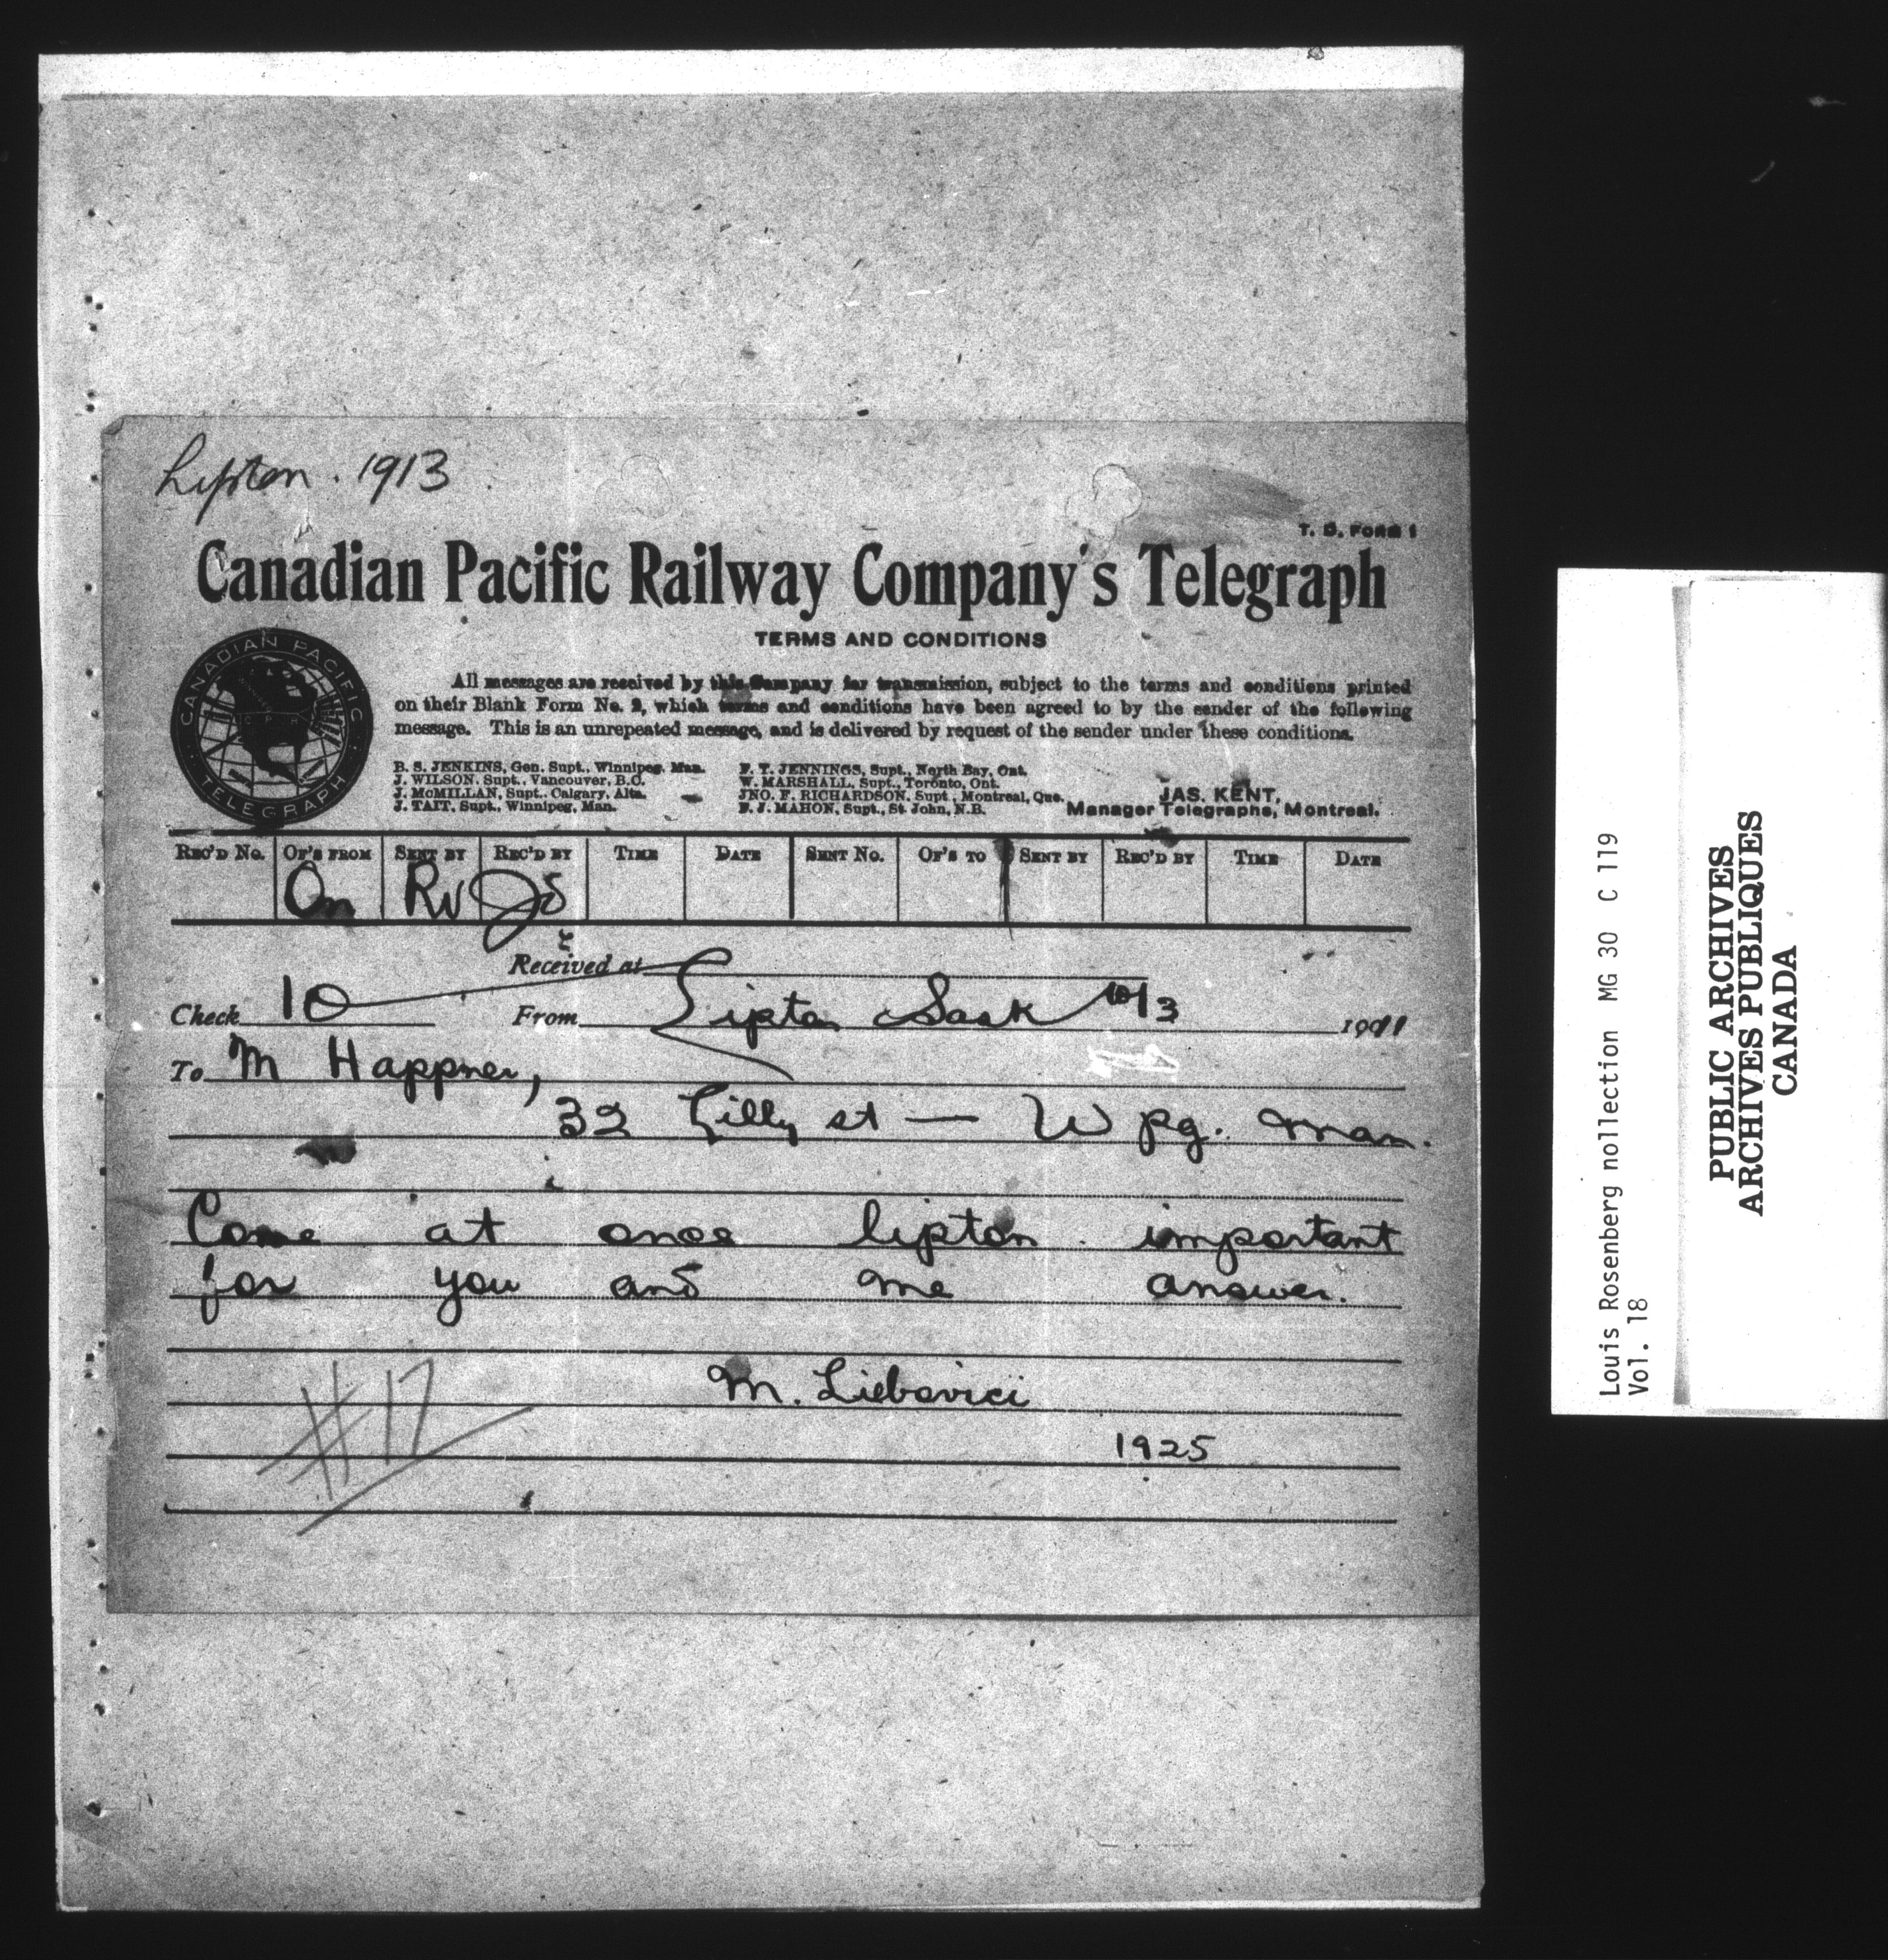 Lipton. 1913
T. D. FORM 1
Canadian Pacific Railway Company's Telegraph
TERMS AND CONDITIONS
All messages are received by this Company for transmission, subject to the terms and conditions printed
on their Blank Form No. 2, which terms and conditions have been agreed to by the sender of the following
message. This is an unrepeated message, and is delivered by request of the sender under these conditions.
CANADIAN PACIFIC
TELEGRAPH
B. S. JENKINS, Gen. Supt., Winnipeg, Man.
J. WILSON, Supt., Vancouver, B.C.
J. McMILLAN, Supt., Calgary, Alta.
J. TAIT, Supt., Winnipeg, Man.
F. T. JENNINGS, Supt., North Bay, Ont.
W. MARSHALL, Supt., Toronto, Ont.
JNO. F. RICHARDSON, Supt., Montreal, Que.
F. J. MAHON, Supt., St. John, N.B.
JAS. KENT,
Manager Telegraphs, Montreal.
REC'D No. OF'S FROM SENT BY REC'D BY TIME DATE SENT No. OF'S TO SENT BY REC'D BY TIME DATE
On Rv JS
Received at
Check 10 From Lipton Sask 10/3 1911
To M Happner,
32 Lilly st — Wpg. Man.
Come at once lipton important
for you and me answer.
M. Liebovici
1925
#17
Louis Rosenberg nollection MG 30 C 119
Vol. 18
PUBLIC ARCHIVES
ARCHIVES PUBLIQUES
CANADA